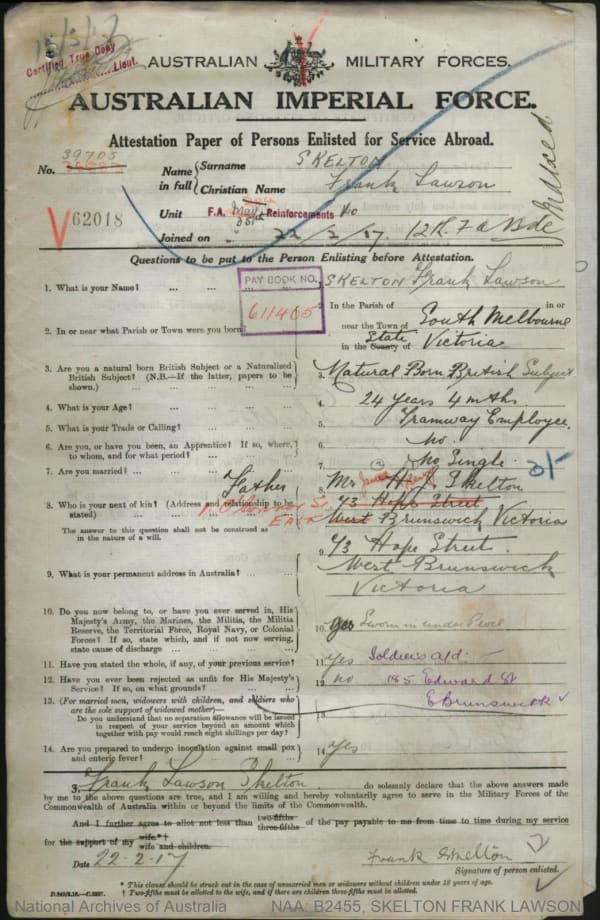 15/5/17
Certified True Copy
Lieut.
AUSTRALIAN MILITARY FORCES.
AUSTRALIAN IMPERIAL FORCE.
Attestation Paper of Persons Enlisted for Service Abroad.
No. 39705
Name in full { Surname SKELTON
Christian Name Frank Lawson
V62018
Unit F.A. May 1917 Reinforcements
Joined on 22/2/17 12th F a Bde
Questions to be put to the Person Enlisting before Attestation.
PAY BOOK NO.
611405
1. What is your Name? ... ... ... SKELTON Frank Lawson
2. In or near what Parish or Town were you born? In the Parish of in or
near the Town of South Melbourne
in the County of State Victoria
3. Are you a natural born British Subject or a Naturalized
British Subject? (N.B.—If the latter, papers to be
shown.) ... ... ... 3. Natural Born British Subject
4. What is your Age? ... ... ... 4. 24 years 4 mths.
5. What is your Trade or Calling? ... ... 5. Tramway Employee.
6. Are you, or have you been, an Apprentice? If so, where,
to whom, and for what period? ... ... 6. No.
7. Are you married? ... ... ... 7. No, Single. 3/-
8. Who is your next of kin? (Address and relationship to be
stated) ... ... Father 8. Mr H. J. Skelton
43 Hope Street
West Brunswick Victoria
East
The answer to this question shall not be construed as
in the nature of a will.
9. What is your permanent address in Australia? ... 9. 43 Hope Street.
West Brunswick
Victoria
10. Do you now belong to, or have you ever served in, His
Majesty's Army, the Marines, the Militia, the Militia
Reserve, the Territorial Force, Royal Navy, or Colonial
Forces? If so, state which, and if not now serving,
state cause of discharge ... ... 10. yes
11. Have you stated the whole, if any, of your previous service? 11. yes Soldiers a/d:-
12. Have you ever been rejected as unfit for His Majesty's
Service? If so, on what grounds? ... ... 12. no 185 Edward St
E Brunswick
13. (For married men, widowers with children, and soldiers who
are the sole support of widowed mother)—
Do you understand that no separation allowance will be issued
in respect of your service beyond an amount which
together with pay would reach eight shillings per day? 13.
14. Are you prepared to undergo inoculation against small pox
and enteric fever? ... ... ... 14. yes
I, Frank Lawson Skelton. do solemnly declare that the above answers made
by me to the above questions are true, and I am willing and hereby voluntarily agree to serve in the Military Forces of the
Commonwealth of Australia within or beyond the limits of the Commonwealth.
And I further agree to allot not less than two-fifths three-fifths of the pay payable to me from time to time during my service
for the support of my wife.* † wife and children.
Date 22-2-17 Frank Skelton
Signature of person enlisted.
* This clause should be struck out in the case of unmarried men or widowers without children under 18 years of age.
† Two-fifths must be allotted to the wife, and if there are children three-fifths must be allotted.
National Archives of Australia NAA: B2455, SKELTON FRANK LAWSON